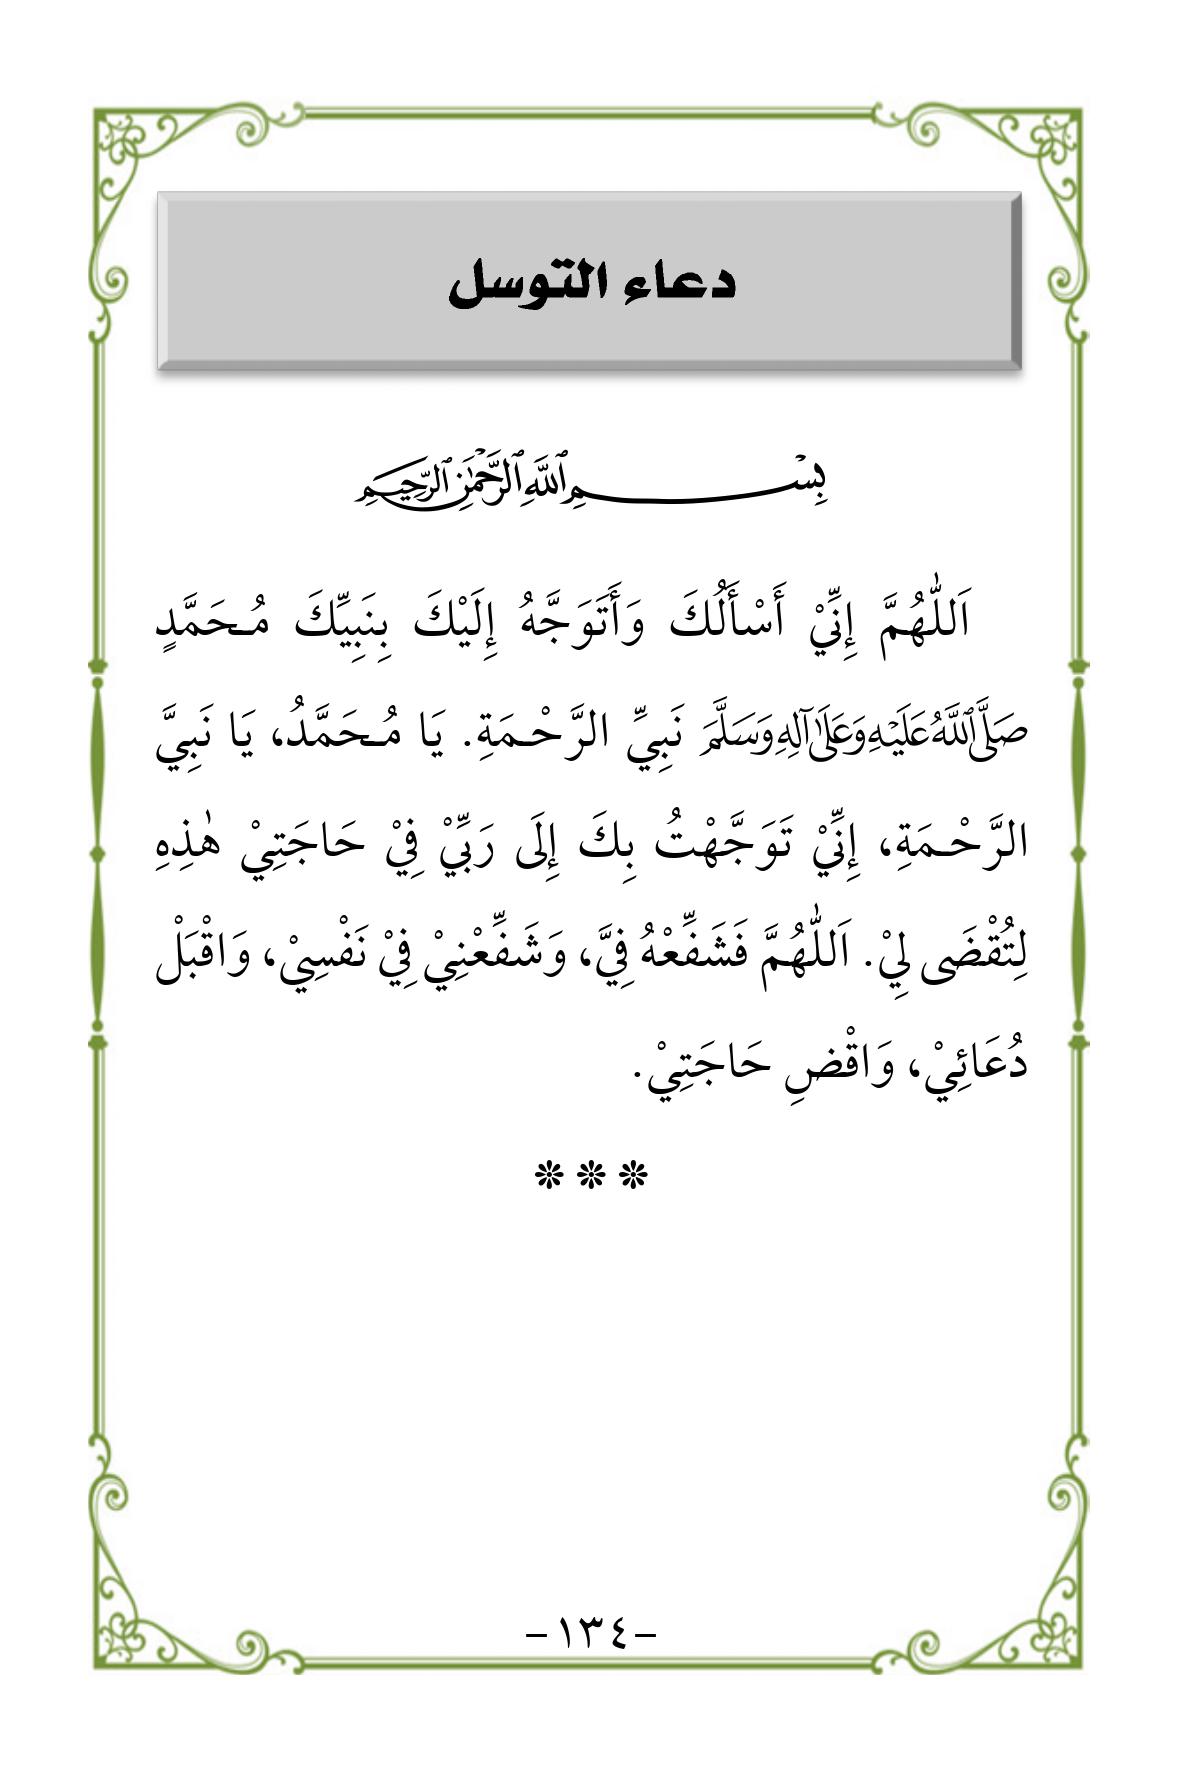 دعاء التوسل
بِسْمِ ٱللَّهِ ٱلرَّحْمَٰنِ ٱلرَّحِيمِ
اَللّٰهُمَّ إِنِّيْ أَسْأَلُكَ وَأَتَوَجَّهُ إِلَيْكَ بِنَبِيِّكَ مُـحَمَّدٍ
صَلَّى ٱللَّهُ عَلَيْهِ وَعَلَىٰ آلِهِ وَسَلَّمَ نَبِيِّ الرَّحْـمَةِ. يَا مُـحَمَّدُ، يَا نَبِيَّ
الرَّحْـمَةِ، إِنِّيْ تَوَجَّهْتُ بِكَ إِلَى رَبِّيْ فِيْ حَاجَتِيْ هٰذِهِ
لِتُقْضَى لِيْ. اَللّٰهُمَّ فَشَفِّعْهُ فِيَّ، وَشَفِّعْنِيْ فِيْ نَفْسِيْ، وَاقْبَلْ
دُعَائِيْ، وَاقْضِ حَاجَتِيْ.
❊ ❊ ❊
–١٣٤–